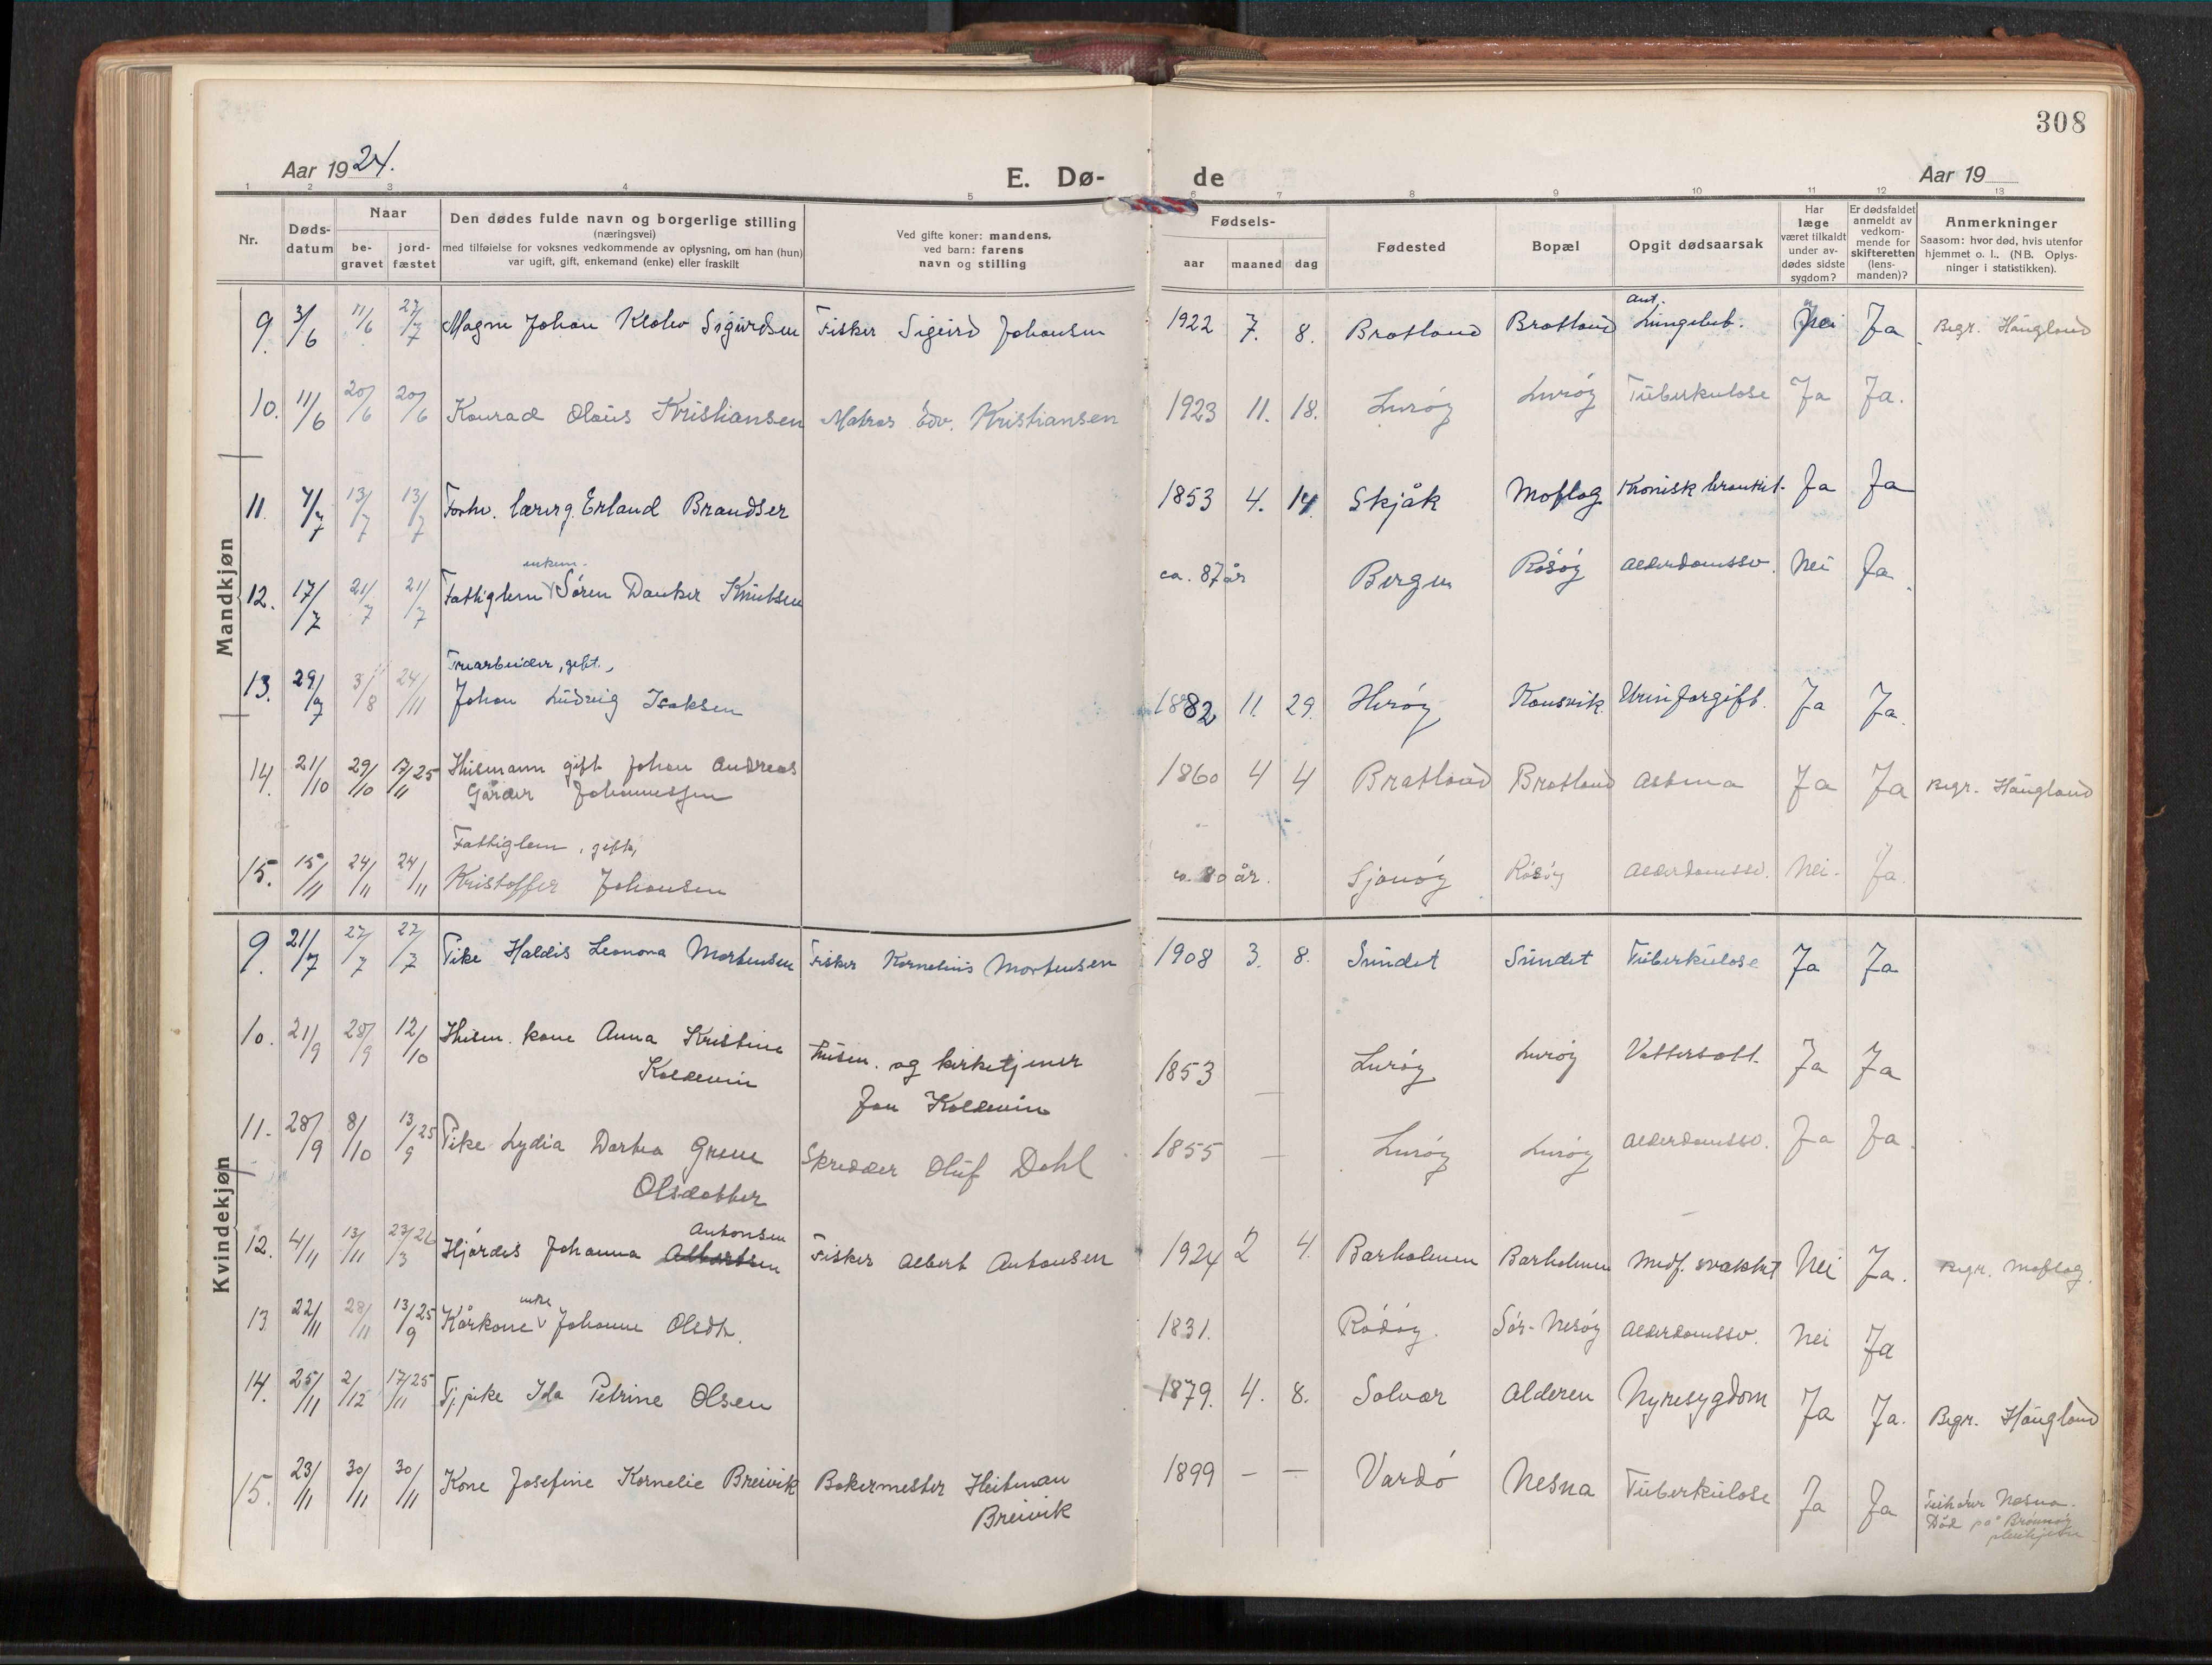 308
Aar 1924.
E. Dø-
de
Aar 19
1 2 3 4 5 6 7 8 9 10 11 12 13
Nr.
Døds-
datum
Naar
be-
gravet
jord-
fæstet
Den dødes fulde navn og borgerlige stilling
(næringsvei)
med tilføielse for voksnes vedkommende av oplysning, om han (hun)
var ugift, gift, enkemand (enke) eller fraskilt
Ved gifte koner: mandens,
ved barn: farens
navn og stilling
Fødsels-
aar
maaned
dag
Fødested
Bopæl
Opgit dødsaarsak
Har
læge
været tilkaldt
under av-
dødes sidste
sygdom?
Er dødsfaldet
anmeldt av
vedkom-
mende for
skifteretten
(lens-
manden)?
Anmerkninger
Saasom: hvor død, hvis utenfor
hjemmet o. l.. (NB. Oplys-
ninger i statistikken).
Mandkjøn
9. 3/6 11/6 27/7 Magne Johan Sigurdsen Fisker Sigurd Johansen 1922 7. 8. Bratland Bratland Ant. Lungebet. Nei Ja Begr. Haugland
10. 11/6 20/6 20/6 Konrad Olaus Kristiansen Matros Edv. Kristiansen 1923 11. 18. Lurøy Lurøy Tuberkulose Ja Ja.
11. 7/7 13/7 13/7 Forhv. lærer g. Erland Brandser 1853 4. 14. Skjåk Moflag Kronisk bronkit. Ja Ja
enkem.
12. 17/7 21/7 21/7 Fattiglem Søren Danker Knutsen ca. 87 år Bergen Rösöy Alderdomssv. Nei Ja.
Truarbeider, gift,
13. 29/7 3/8 24/11 Johan Ludvig Isaksen 1882 11. 29. Herøy Konsvik. Urinforgift. Ja Ja.
14. 21/10 29/10 17/11 25 Husmann gift Johan Andreas
Garder Johannessen 1860 4 4 Bratland Bratland Astma Ja Ja Begr. Haugland
Fattiglem, gift,
15. 15/11 24/11 24/11 Kristoffer Johansen ca. 80 år. Sjonøy Rösöy Alderdomssv. Nei. Ja.
Kvindekjøn
9. 21/7 27/7 27/7 Pike Haldis Leonora Mortensen Fisker Kornelius Mortensen 1908 3. 8. Sundet Sundet Tuberkulose Ja Ja
10. 21/9 28/9 12/10 Husm. kone Anna Kristine
Koldevin
Husm. og kirketjener
Jan Koldevin 1853 — Lurøy Lurøy Vattersott. Ja Ja
11. 28/9 8/10 13/9 25 Pike Lydia Dortea Grene
Olsdatter Skredder Oluf Dahl 1855 — Lurøy Lurøy Alderdomssv. Ja Ja.
Antonsen
12. 4/11 13/11 23/3 26 Hjørdis Johanna Albertsen Fisker Albert Antonsen 1924 2 4. Barholmen Barholmen Medf. svakhet Nei Ja. Begr. Moflag.
enke
13 22/11 28/11 13/9 25 Kårkone Johanne Olsdtr. 1831. Rödöy. Sör-Nesöy Alderdomssv. Nei Ja
14. 25/11 2/12 17/11 25 Tj. pike Ida Petrine Olsen 1879. 4. 8. Solvær Alderen Nyresygdom Ja Ja. Begr. Haugland
15. 23/11 30/11 30/11 Kone Josefine Kornelie Breivik Bakermester Heitman
Breivik 1899 — — Vardö Nesna Tuberkulose Ja Ja Tilhører Nesna.
Død på Brønnøy
pleiehjem